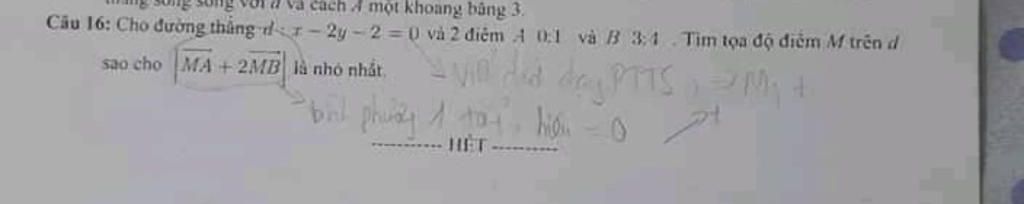 thẳng song song với d và cách A một khoảng bằng 3.
Câu 16: Cho đường thẳng d : x − 2y − 2 = 0 và 2 điểm A 0;1 và B 3;4 . Tìm tọa độ điểm M trên d
sao cho |MA + 2MB| là nhỏ nhất.
PTTS
bình phương 1 = 0
----------- HẾT -----------